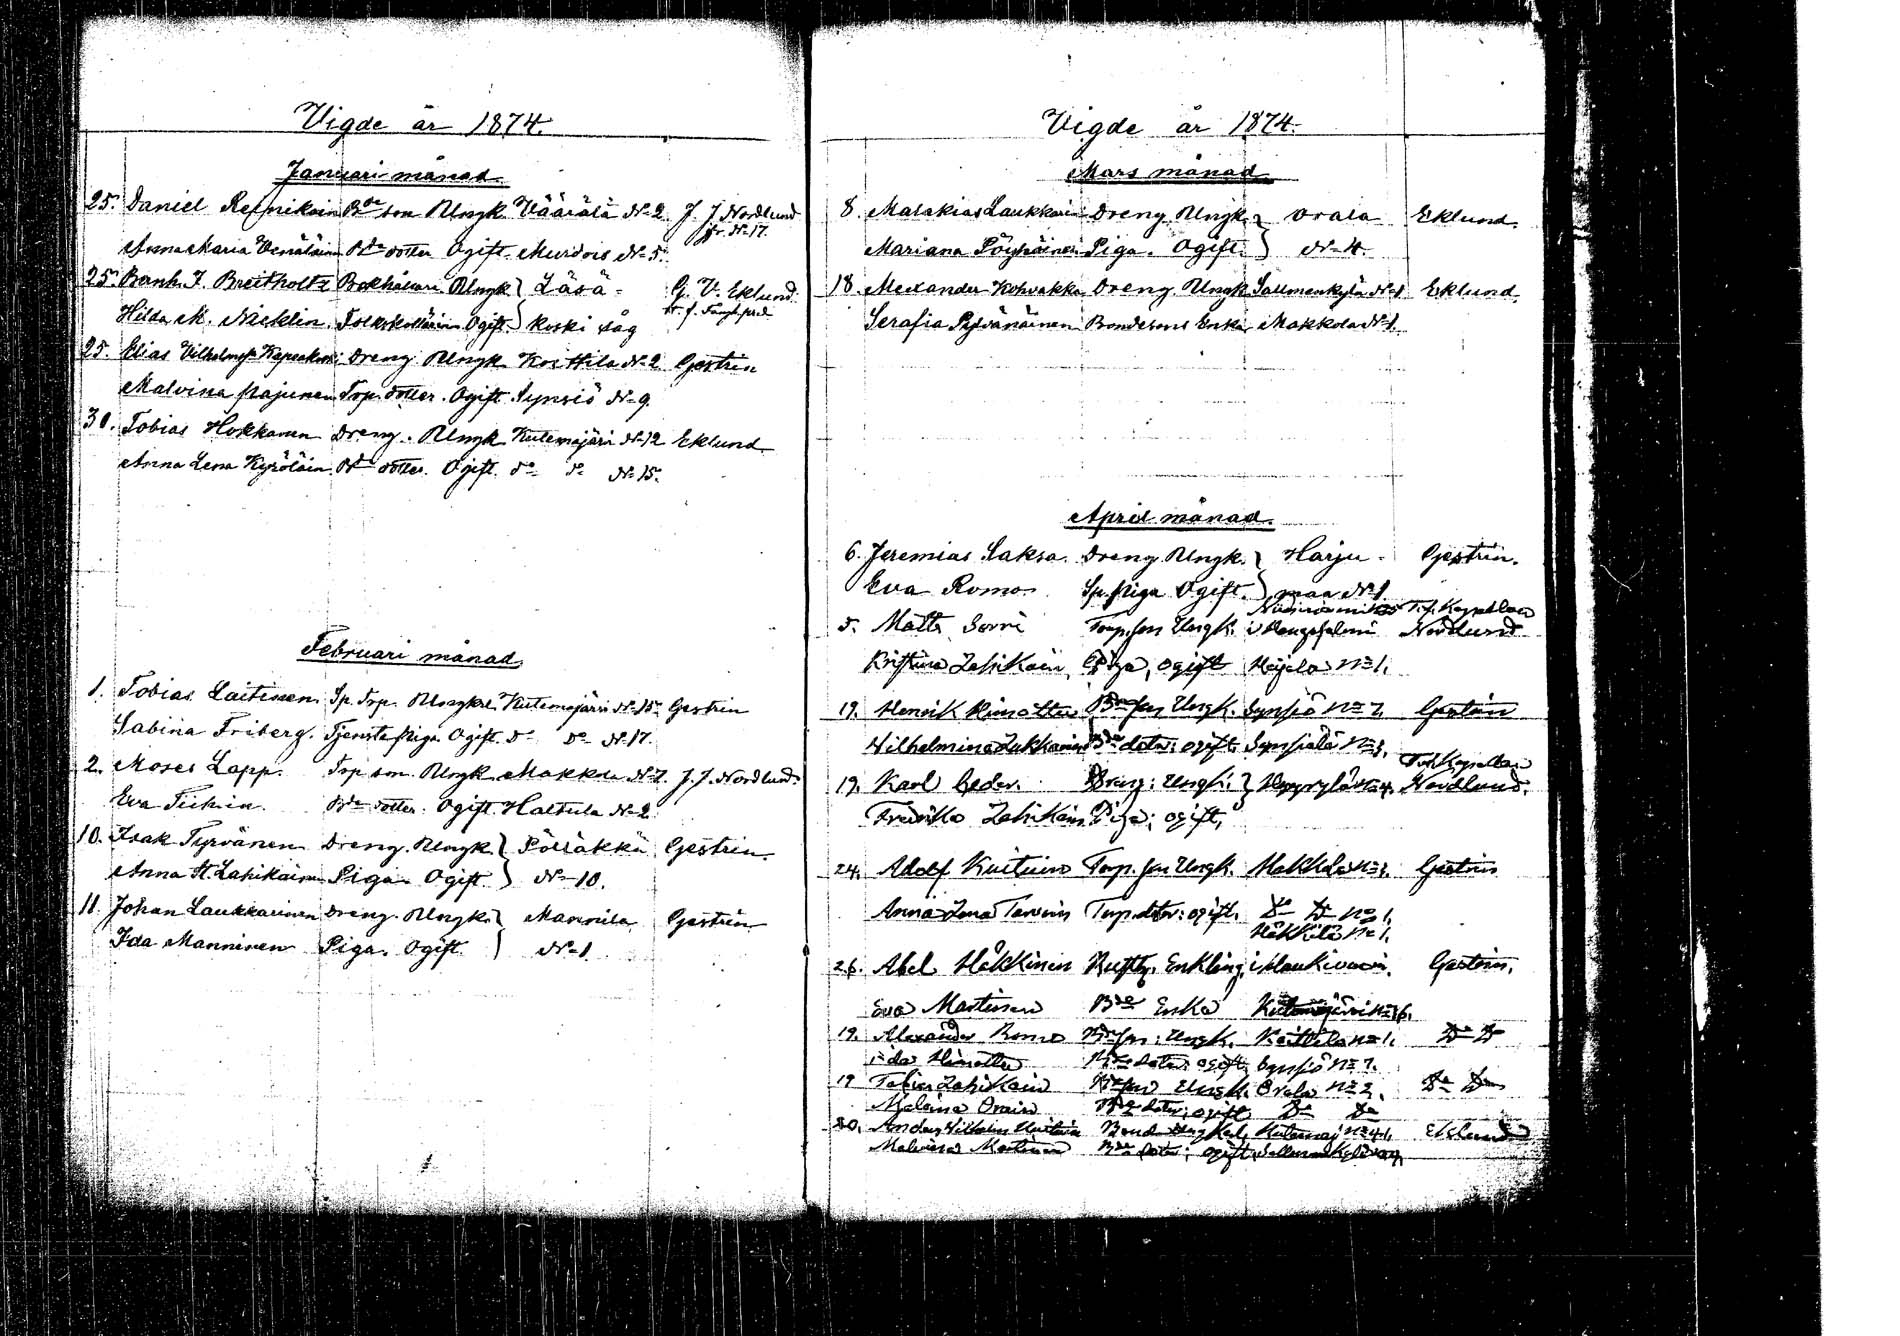 Vigde år 1874.
Januari månad
25. Daniel Reinikain Bde son Ungk. Väärälä No 2 J. J. Nordlund
Anna Maria Venäläin Bde dotter Ogift. Murdois No 5. No 17.
25. Bernh. J. Breitholtz Bokhållare Ungk. } Läsä- G. V. Eklund
Hilda M. Näcklin. Ogift. } koski såg
25. Elias Vilhelm Dreng Ungk. Koittila No 2 Gestrin
Malvina Pajunen Trp. dotter. Ogift. Synsiö No 9.
30. Tobias Hokkanen Dreng. Ungk. Kutemajärvi No 12 Eklund
Anna Lena Kyröläin Bde dotter. Ogift. do do No 15.
Februari månad
1. Tobias Laitinen. Sp. Trp. Ungkl. Kutemajärvi No 15. Gestrin
Sabina Friberg. Tjenstepiga Ogift. Do Do No 17.
2. Moses Lapp. Trp son. Ungk. Makkola No 7. J. J. Nordlund.
Eva Tiihin. Bde dotter. Ogift. Halttula No 2
10. Isak Tyrvänen Dreng. Ungk. } Pölläkkä Gestrin.
Anna H. Lahikainen Piga. Ogift. } No 10.
11. Johan Laukkarinen Dreng. Ungk. } Mannila Gestrin
Ida Manninen Piga. Ogift. } No 1
Vigde år 1874.
Mars månad
8. Malakias Laukkarin Dreng Ungk. } Orala Eklund.
Mariana Pöyhöinen Piga. Ogift. } No 4.
18. Alexander Kohvakka Dreng. Ungk. Sallmenkylä No 1 Eklund.
Serafia Pylvänäinen Bondesons Enka Makkola No 1.
April månad.
6. Jeremias Saksa. Dreng. Ungk. } Harju- Gestrin.
Eva Romo Sp. piga Ogift. } maa No 1
T.f. Kapellan
5. Matts Sorri Torp. son Ungk. i Nordlund
Kristina Lahikain, Piga, ogift Häjälä No 1.
19. Henrik Himottu Bde son Ungk. Synsiö No 7. Gestrin
Wilhelmina Lukkarinen Bde doter; ogift. Synsiälä No 3.
T.f. Kapellan
19. Karl Ceder. Dreng; Ungk. } Hyyrylä No 4. Nordlund.
Fredrika Lahikain Piga; ogift,
24. Adolf Kuituin Torp. son Ungk. Makkola No 1. Gestrin
Anna Lena Tarvain Torp. doter; ogift. Do Do No 1.
Häkkilä No 1.
26. Abel Häkkinen Enkling, i Haukivuori. Gestrin.
Eva Martinen Bde Enka Kutemajärvi No 16.
19. Alexander Romo Bde son; Ungk. Koittila No 1. Do Do
Ida Himottu Bde doter; ogift, Synsiö No 7.
19 Tobias Lahikain Bde son Ungk. Orala No 2. Do Do
Malvina Orain Bde doter; ogift Do Do
20. Anders Wilhelm Kuituin Bond. Ungkarl, Kutemaj No 41. Eklund
Malvina Martinen Bde doter; ogift